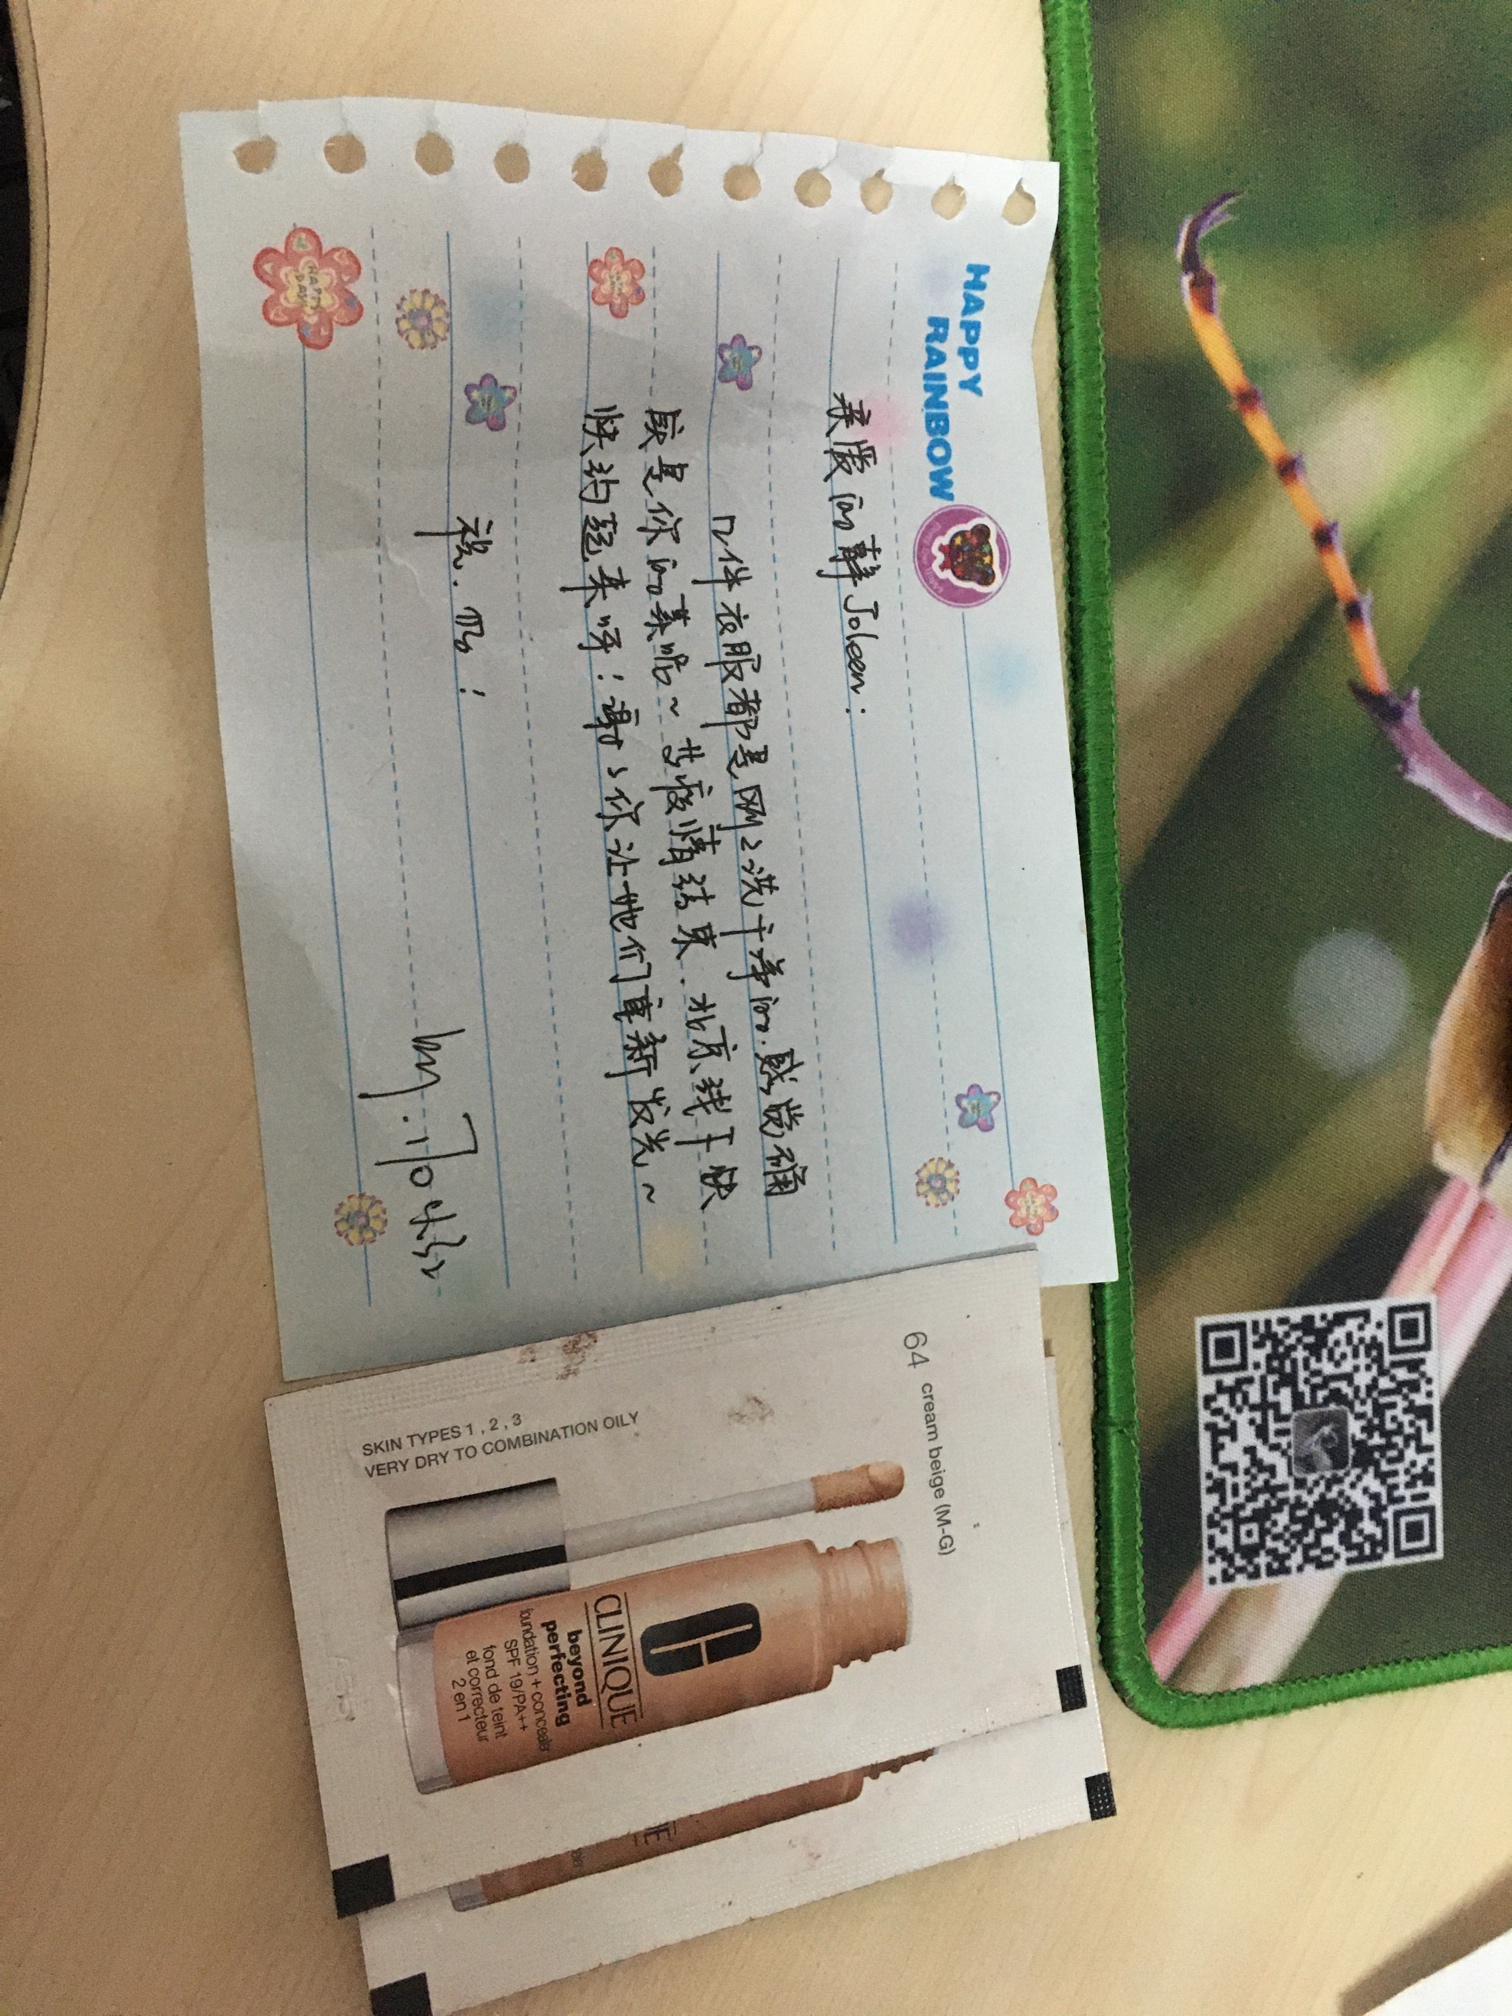 HAPPY
RAINBOW
亲爱的韩Joleen:
7件衣服都是刚刚洗干净的.感觉确
实是你的菜呢~ 若疫情结束.北京线下快
快约起来呀!谢谢你让她们重新发光~
祝.好!
by.
64 cream beige (M-G)
SKIN TYPES 1 , 2 , 3
VERY DRY TO COMBINATION OILY
CLINIQUE
beyond
perfecting
foundation + concealer
SPF 19/PA++
fond de teint
et correcteur
2 en 1